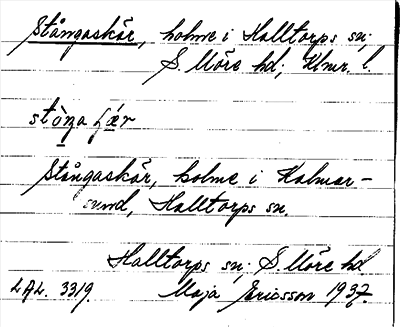 Stångaskär, holme i Halltorps sn;
S. Möre hd; Klmr. l.
Stångaskär, holme i Kalmar-
sund, Halltorps sn.
Halltorps sn; S. Möre hd
LAL. 3319. Maja Ericsson 1937.